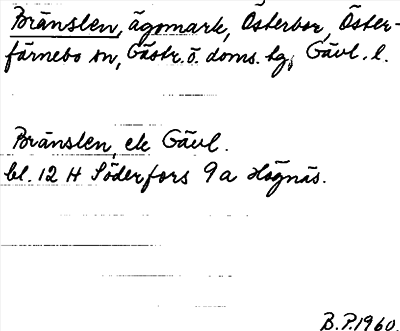 Bränslen, ägomark, Österbor, Öster-
färnebo sn, Gästr. ö. doms. hg, Gävl. l.
Bränslen, ek Gävl.
bl. 12 H Söderfors 9 a Högnäs.
B.P. 1960.